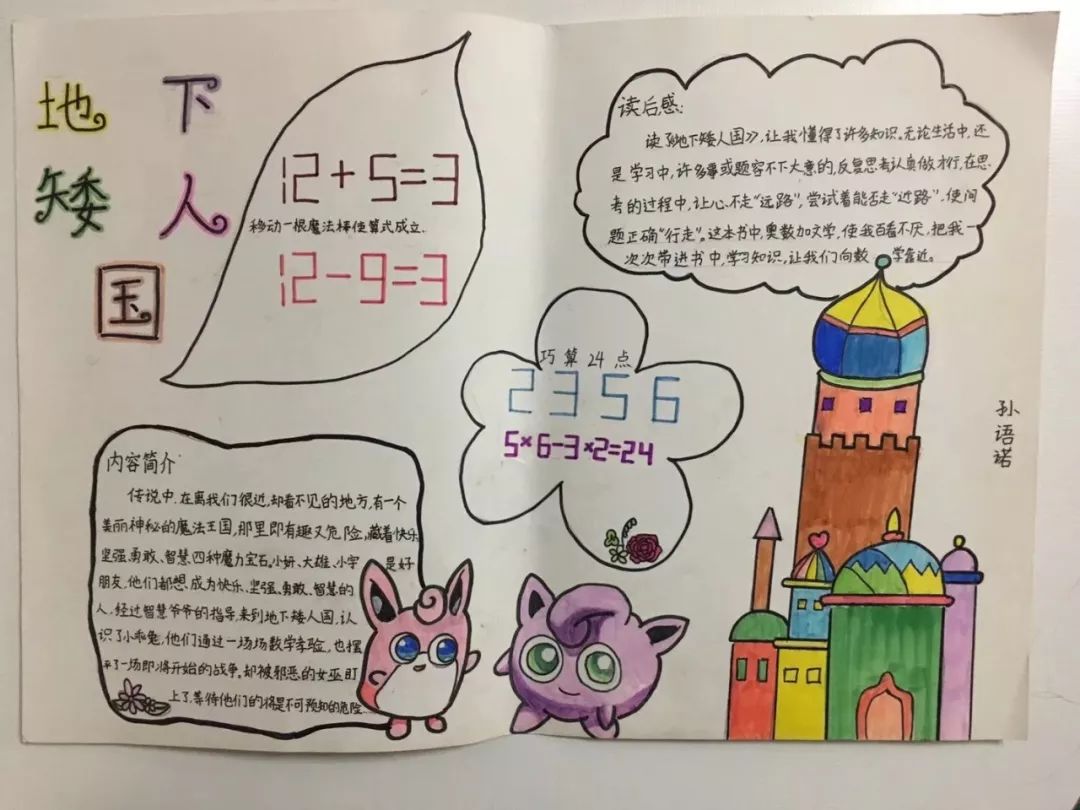 地下
矮人
国
12+5=3
移动一根魔法棒使算式成立.
12-9=3
读后感:
读《地下矮人国》,让我懂得了许多知识.无论生活中,还
是学习中,许多事或题容不下大意的,反复思考认真做才行,在思
考的过程中,让心不走“远路”,尝试着能否走“近路”,使问
题正确“行走”。这本书中,奥数加文学,使我百看不厌,把我一
次次带进书中,学习知识,让我们向数学靠近。
巧算24点
2 3 5 6
5×6-3×2=24
孙语诺
内容简介
传说中,在离我们很近,却看不见的地方,有一个
美丽神秘的魔法王国,那里即有趣又危险,藏着快乐
坚强、勇敢、智慧四种魔力宝石。小妍、大雄、小宇是好
朋友,他们都想成为快乐、坚强、勇敢、智慧的
人,经过智慧爷爷的指导,来到地下矮人国,认
识了小乖兔,他们通过一场场数学考验,也摆
平了一场即将开始的战争,却被邪恶的女巫盯
上了,等待他们的将是不可预知的危险……